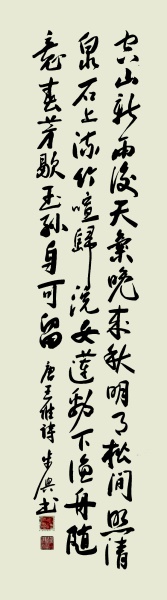 空山新雨後天氣晚來秋明月松間照清
泉石上流竹喧歸浣女蓮動下漁舟隨
意春芳歇王孫自可留
唐王維詩 書